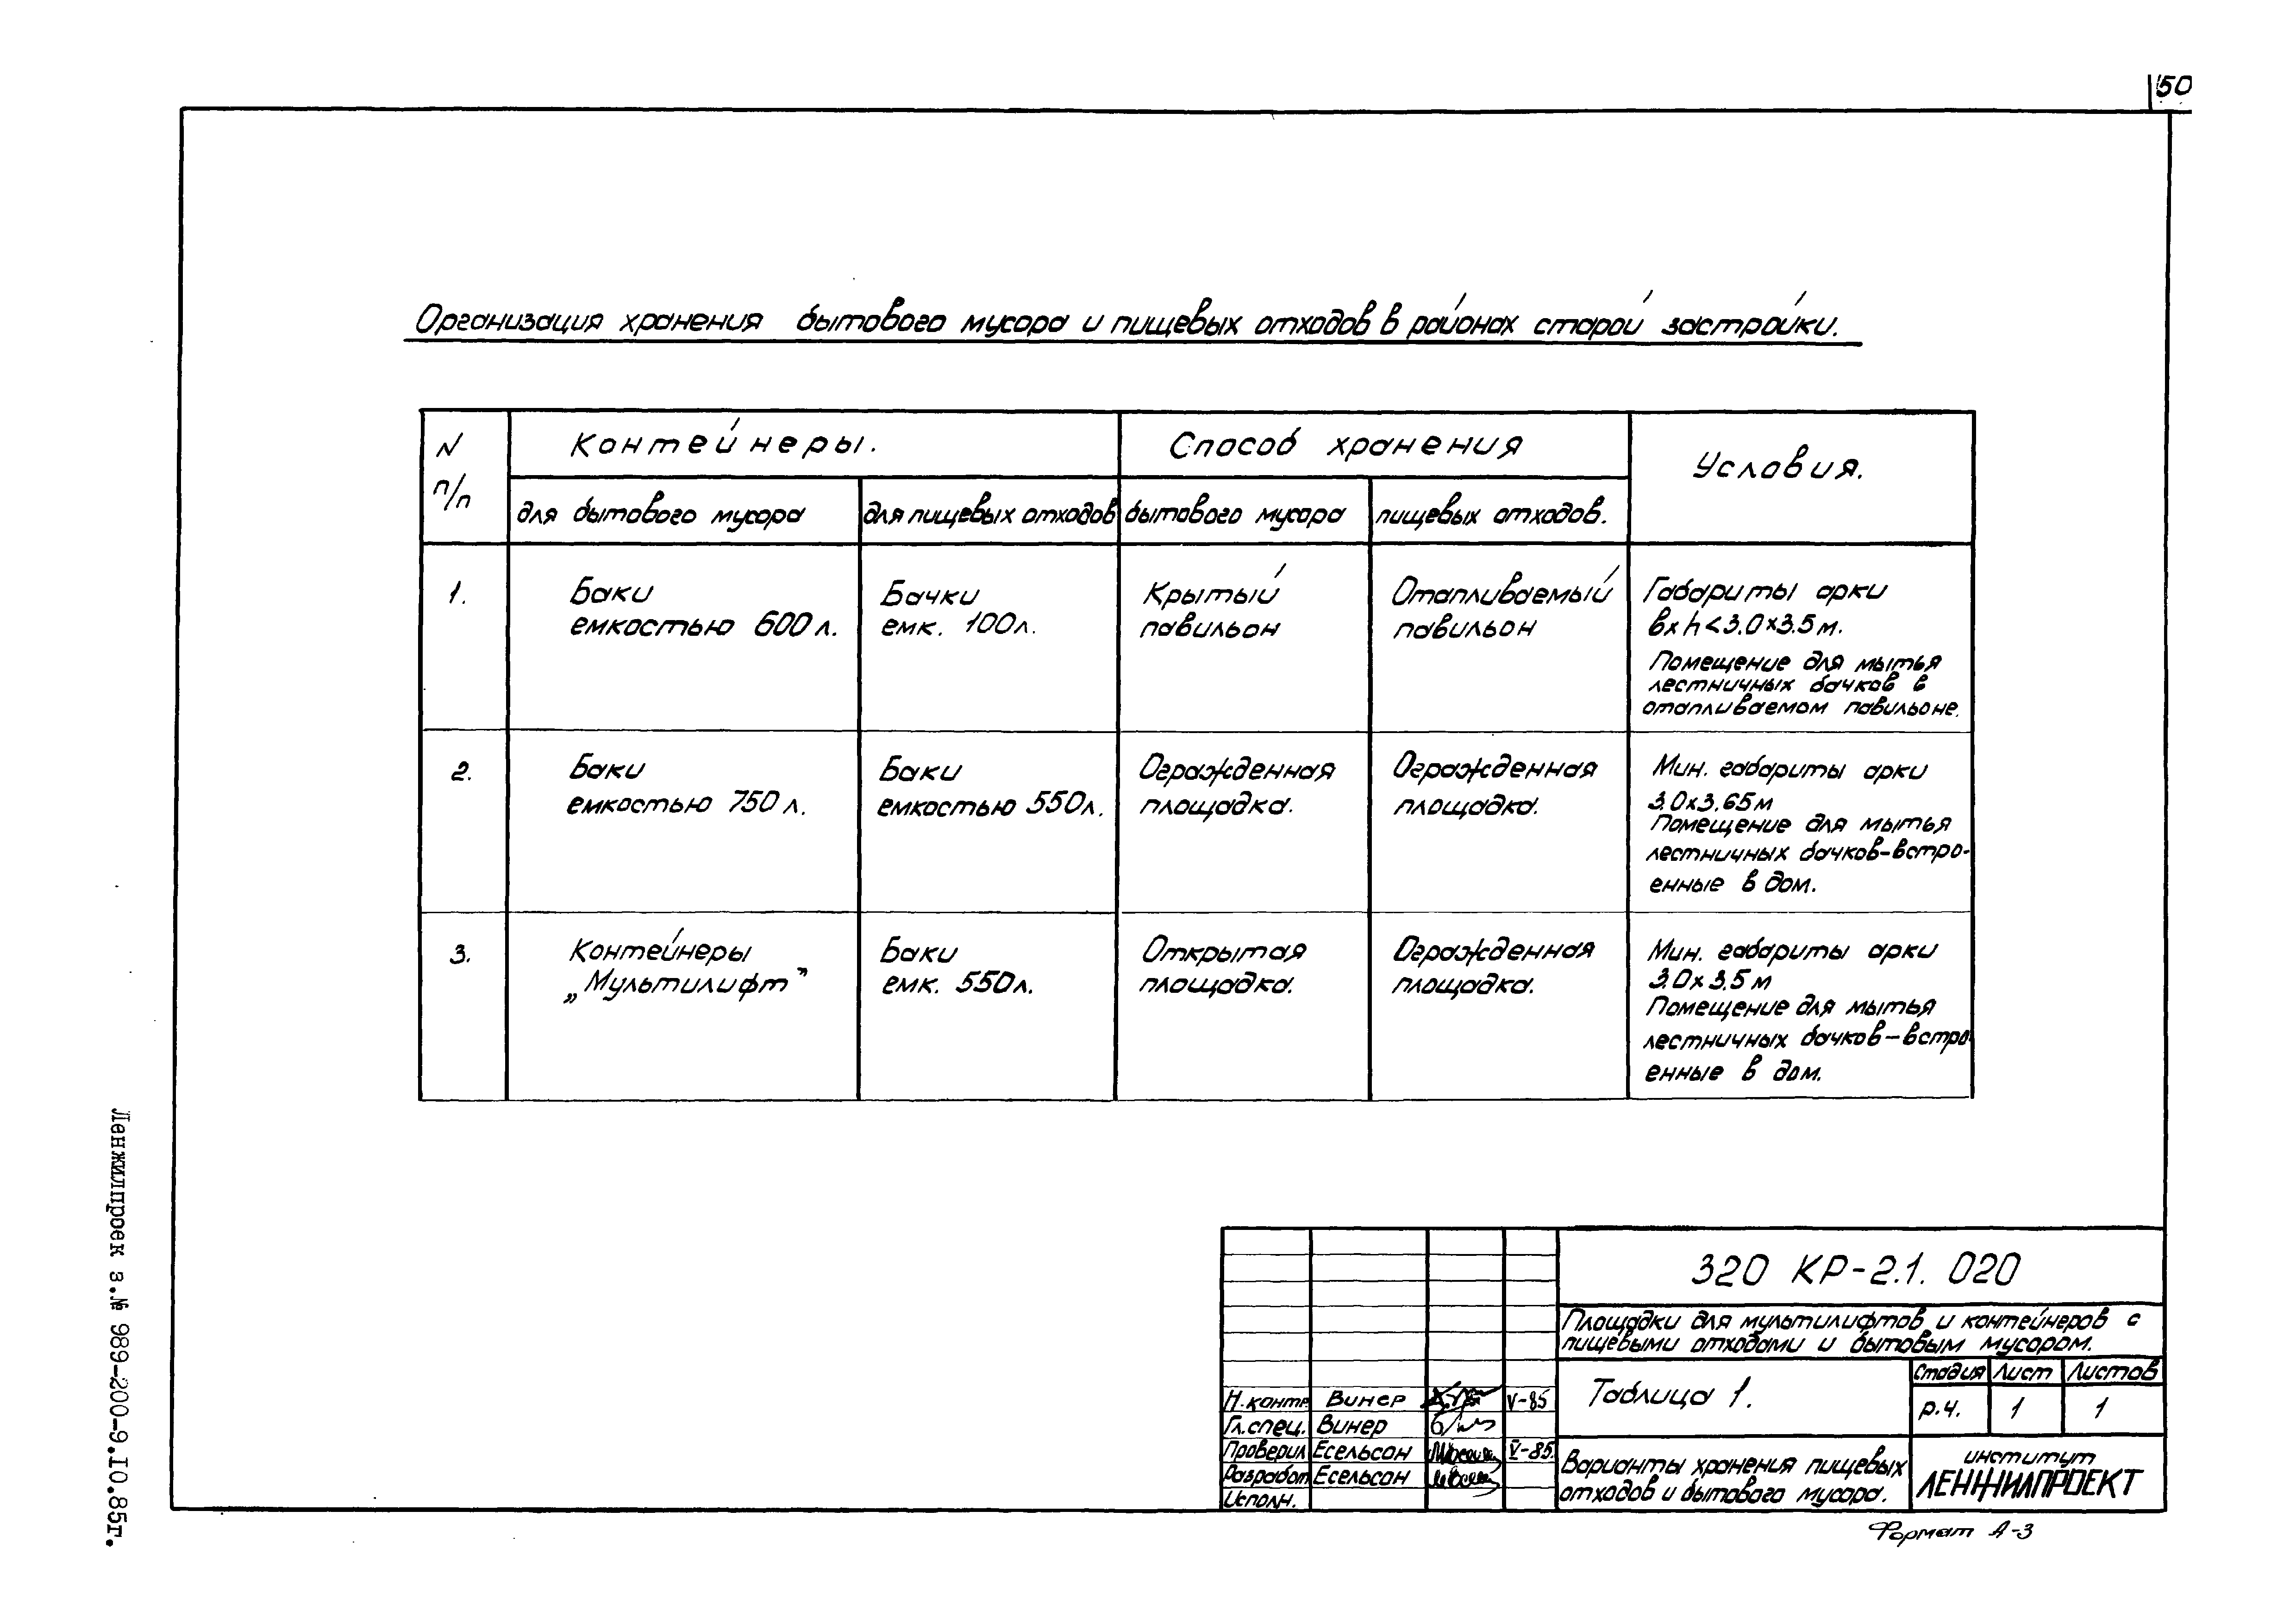 50
Организация хранения бытового мусора и пищевых отходов в районах старой застройки.
N п/п
Контейнеры.
Способ хранения
Условия.
для бытового мусора
для пищевых отходов
бытового мусора
пищевых отходов.
1.
Баки
емкостью 600 л.
Бачки
емк. 100л.
Крытый
павильон
Отапливаемый
павильон
Габариты арки
в x h < 3.0 x 3.5 м.
Помещение для мытья
лестничных бачков в
отапливаемом павильоне.
2.
Баки
емкостью 750 л.
Баки
емкостью 550л.
Огражденная
площадка.
Огражденная
площадка.
Мин. габариты арки
3.0x3.65м
Помещение для мытья
лестничных бачков-встро-
енные в дом.
3.
Контейнеры
„Мультилифт”
Баки
емк. 550л.
Открытая
площадка.
Огражденная
площадка.
Мин. габариты арки
3.0x3.5 м
Помещение для мытья
лестничных бачков-встро
енные в дом.
320 КР-2.1. 020
Площадки для мультилифтов и контейнеров с
пищевыми отходами и бытовым мусором.
Таблица 1.
Стадия Лист Листов
р.ч. 1 1
Н.контр. Винер V-85
Гл.спец. Винер
Проверил Есельсон V-85.
Разработ. Есельсон
Исполн.
Варианты хранения пищевых
отходов и бытового мусора.
институт
ЛЕНЖИЛПРОЕКТ
Формат А-3
Ленжилпроек з.№ 989-200-9.10.85г.